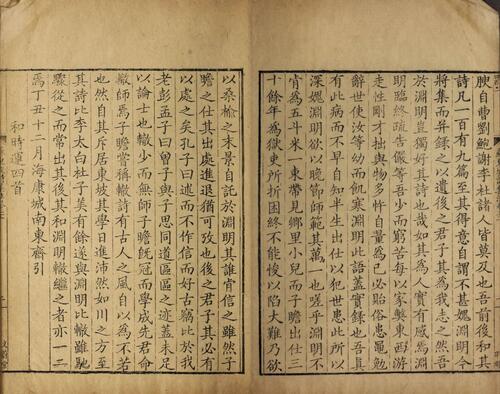 腴自曹劉鮑謝李杜諸人皆莫及也吾前後和其
詩凡一百有九篇至其得意自謂不甚媿淵明今
將集而并錄之以遺後之君子其為我志之然吾
於淵明豈獨好其詩也哉如其為人實有感焉淵
明臨終疏告儼等吾少而窮苦每以家弊東西游
走性剛才拙與物多忤自量為己必貽俗患黽勉
辭世使汝等幼而飢寒淵明此語蓋實錄也吾真
有此病而不早自知半生出仕以犯世患此所以
深媿淵明欲以晚節師範其萬一也嗟乎淵明不
肯為五斗米一束帶見鄉里小兒而子瞻出仕三
十餘年為獄吏所折困終不能悛以陷大難乃欲
以桑榆之末景自託於淵明其誰肯信之雖然子
瞻之仕其出處進退猶可攷也後之君子其必有
以處之矣孔子曰述而不作信而好古竊比於我
老彭孟子曰曾子與子思同道區區之迹蓋未足
以論士也轍少而無師子瞻既冠而學成先君命
轍師焉子瞻嘗稱轍詩有古人之風自以為不若
也然自其斥居東坡其學日進沛然如川之方至
其詩比李太白杜子美有餘遂與淵明比轍雖馳
驟從之而常出其後其和淵明轍繼之者亦一二
焉丁丑十二月海康城南東齋引
和時運四首